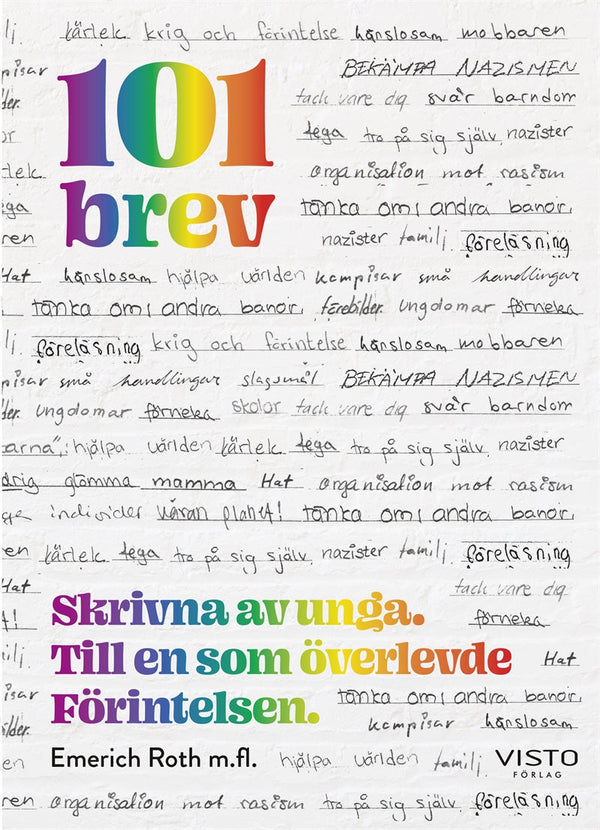 kärlek krig och förintelse hänslosam mobbaren
BEKÄMPA NAZISMEN
101
tack vare dig svår barndom
fega tro på sig själv, nazister
organisation mot rasism
brev
tänka om andra banor,
nazister familj, föreläsning
Hat hänslosam hjälpa världen kompisar små handlingar
tänka om andra banor, förebilder. ungdomar förneka
föreläsning krig och förintelse hänslosam mobbaren
små handlingar slagsmål BEKÄMPA NAZISMEN
ungdomar förneka skolor tack vare dig svår barndom
hjälpa världen kärlek fega tro på sig själv, nazister
glömma mamma Hat organisation mot rasism
individer våran planet! tänka om andra banor,
kärlek fega tro på sig själv, nazister familj, föreläsning
Hat tack vare dig
Skrivna av unga.
förneka
Till en som överlevde
Hat
Förintelsen.
tänka om andra banor,
kompisar hänslosam
Emerich Roth m.fl. hjälpa världen familj, VISTO
FÖRLAG
organisation mot rasism tro på sig själv, föreläsning